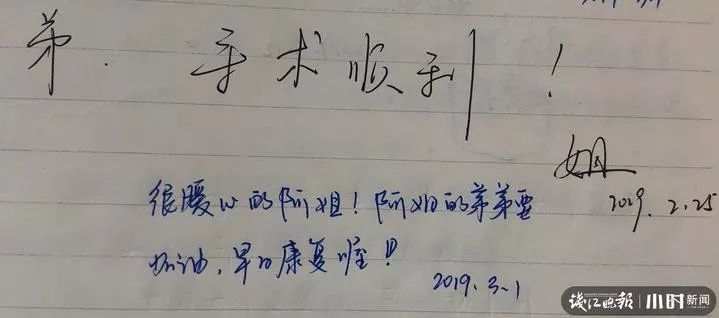 弟. 手术顺利!
姐
2019.2.25
很暖心的阿姐!阿姐的弟弟要
加油,早日康复喔!
2019.3.1
钱江晚报 小时新闻